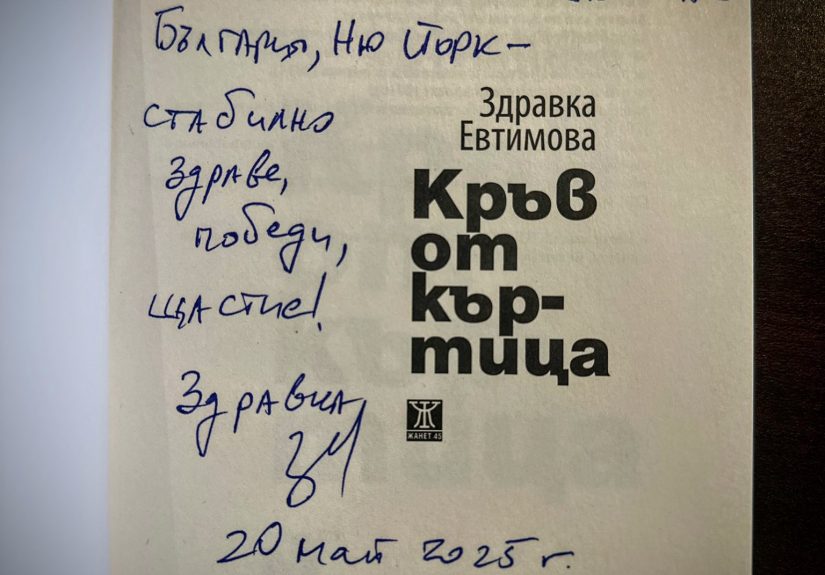 Българи, Ню Йорк –
стабилно
здраве,
победи,
щастие!
Здравка
20 май 2025 г.
Здравка
Евтимова
Кръв
от
кър-
тица
ЖАНЕТ 45